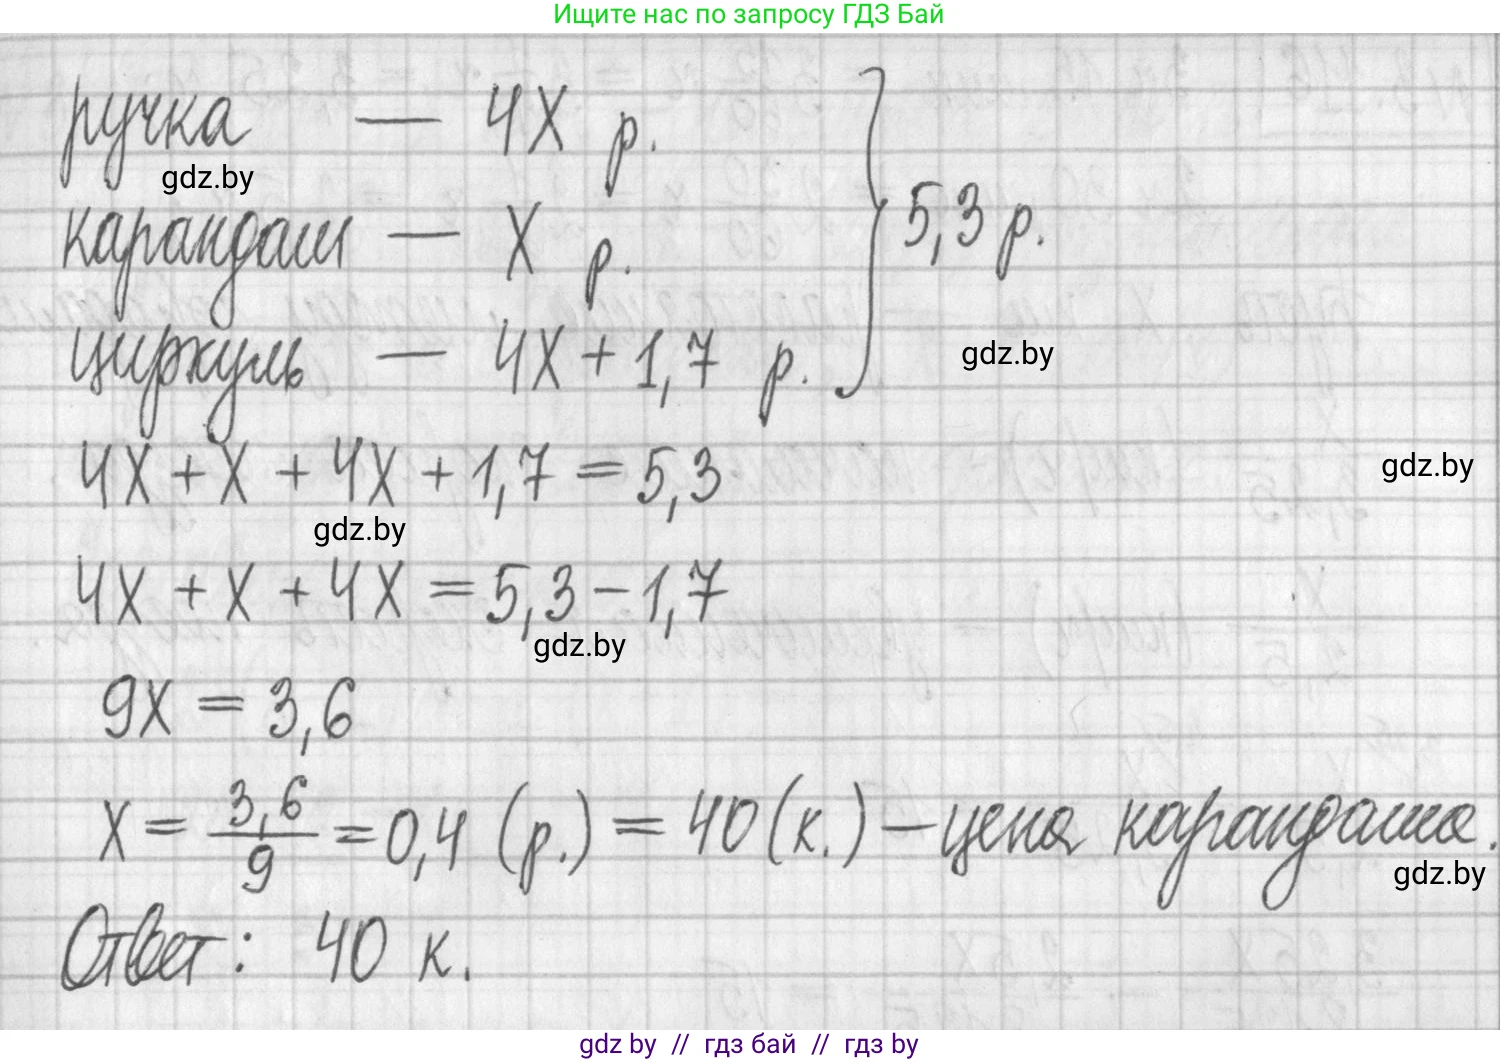 Ищите нас по запросу ГДЗ Бай
ручка — 4х р.
gdz.by
карандаш — х р.
5,3 р.
циркуль — 4х + 1,7 р.
gdz.by
4х + х + 4х + 1,7 = 5,3
gdz.by
gdz.by
4х + х + 4х = 5,3 - 1,7
gdz.by
9х = 3,6
х = 3,6/9 = 0,4 (р.) = 40 (к.) — цена карандаша.
gdz.by
Ответ: 40 к.
gdz by // гдз бай // гдз by